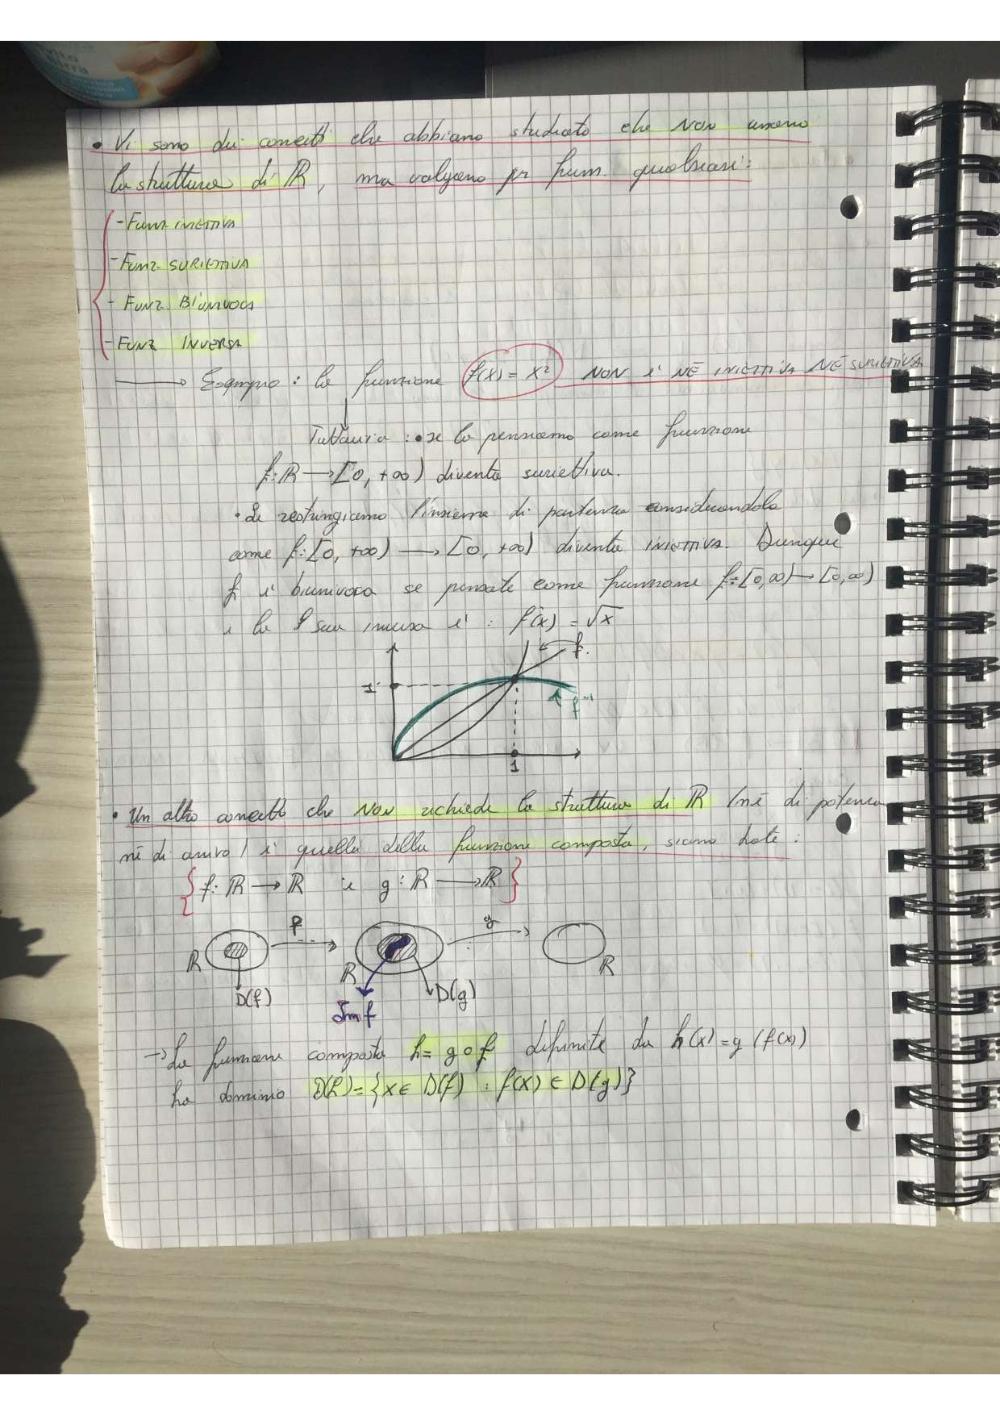 • Vi sono dei concetti che abbiamo studiato che NON usano
la struttura di ℝ, ma valgono per funz. qualsiasi:
- FUNZ INIETTIVA
- FUNZ SURIETTIVA
- FUNZ. BIUNIVOCA
- FUNZ INVERSA
→ Esempio: la funzione f(x) = x² NON È NÈ INIETTIVA NÈ SURIETTIVA
Tuttavia: • se la pensiamo come funzione
f: ℝ → [0, +∞) diventa suriettiva.
• Se restringiamo l'insieme di partenza considerandola
come f: [0, +∞) → [0, +∞) diventa INIETTIVA. Dunque
f è biunivoca se pensata come funzione f: [0, ∞) → [0, ∞)
e la sua inversa è: f(x) = √x
f.
1
f⁻¹
1
• Un altro concetto che NON richiede la struttura di ℝ (né di partenza
né di arrivo) è quella della funzione composta, siano date:
{f: ℝ → ℝ e g: ℝ → ℝ}
f g
ℝ ℝ ℝ
D(f) Im f D(g)
→ La funzione composta h = g∘f definita da h(x) = g(f(x))
ha dominio D(h) = {x ∈ D(f) : f(x) ∈ D(g)}